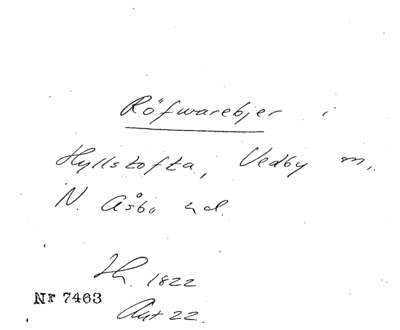 Röfwarebjer i
Hyllstofta, Vedby m,
N. Åsbo hd.
Ih. 1822
Nr 7463
Aut 22.